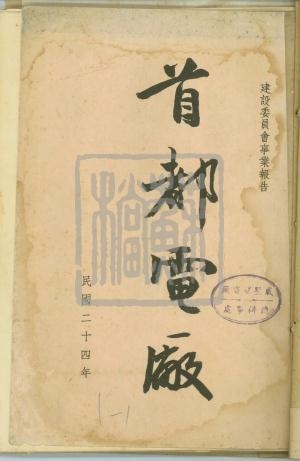 建設委員會事業報告
首都電廠
民國二十四年
1-1